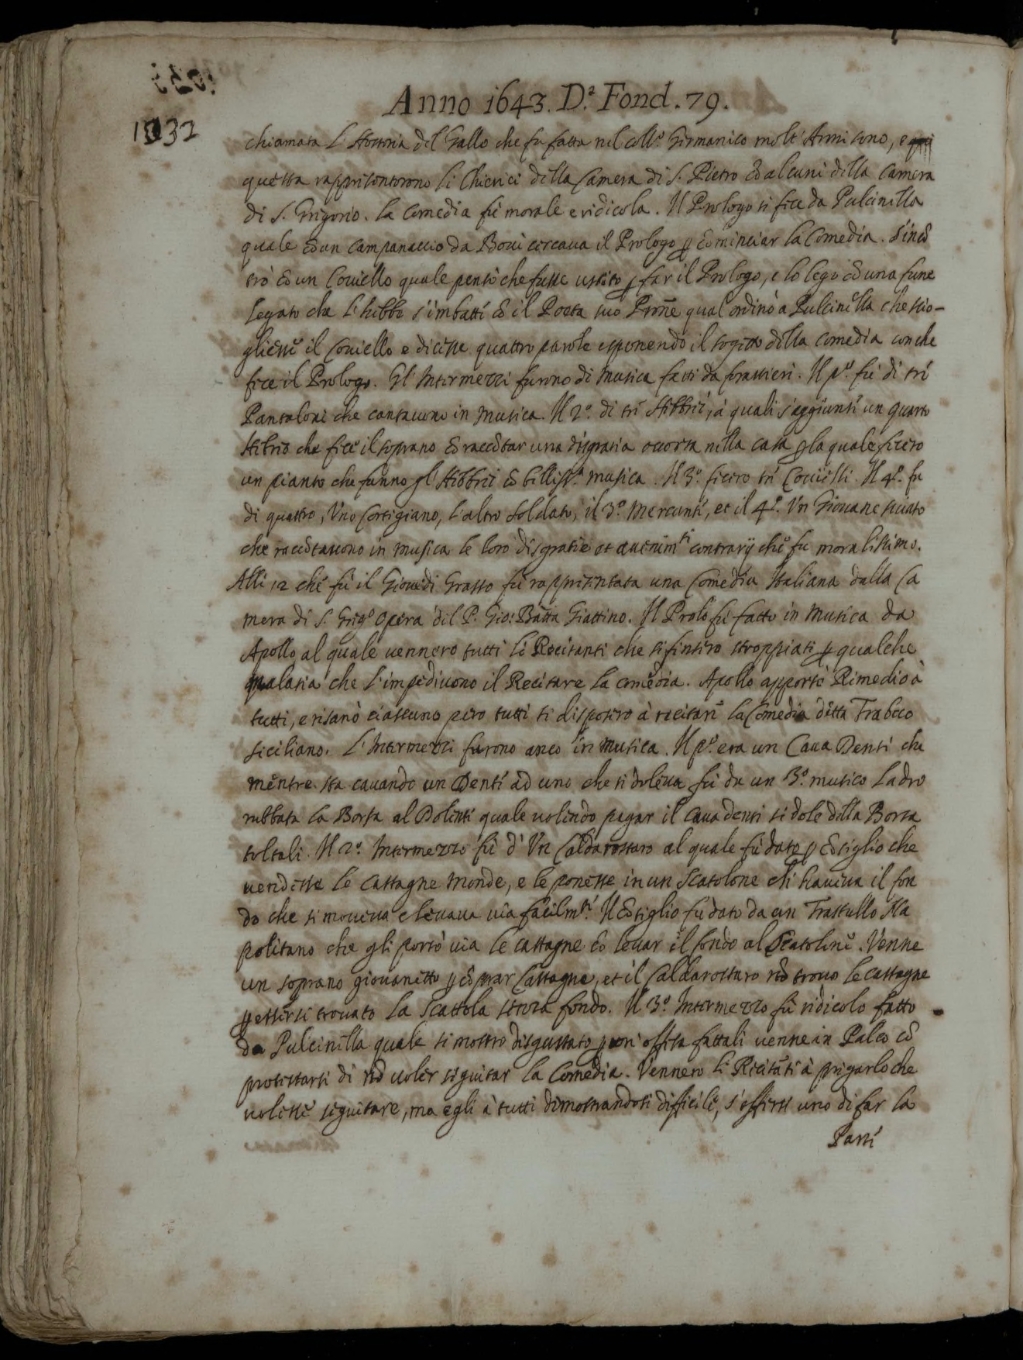 Anno 1643. D.ª Fond. 79.
1032
chiamata l'Hosteria del Gallo che fu fatta nel Coll.º Germanico molt' Anni sono, e
questa rappresentorono li Chierici della Camera di S. Pietro cō alcuni della Camera
di S. Grigorio. la Comedia fù morale e ridicola. Il Prologo si fece da Pulcinella
quale cō un Campanaccio da Bovi cercava il Prologo p cōminciar la Comedia. S'incō
trò cō un Coviello quale pensò che fusse vestito p far il Prologo, e lo legò cō una fune
legato che l'hebbe s'imbatté cō il Poeta suo Prōne qual ordinò à Pulcinella che scio-
gliesse il Coviello e dicesse quattro parole esponendo il sogetto della Comedia con che
fece il Prologo. Gl'Intermezzi furono di Musica fatti da forastieri. Il pº. fù di trè
Pantaloni che cantavano in musica. Il 2º. di trè Hebrei, à quali s'aggiunse un quarto
Hebreo che fece il soprano cō raccōtar una disgratia occorsa nella casa p la quale fecero
un pianto che fanno gl'Hebrei cō bellissª. musica. Il 3º. fecero trè Covielli. Il 4º. fu
di quattro, Uno Cortigiano, l'altro soldato, il 3º. Mercante, et il 4º. Un Giovane
che raccōtavono in musica le loro disgratie et avenimti contrarij che fu moralissimo.
Alli 12 che fù il Giovedi Grasso fù rappresentata una Comedia Italiana dalla Ca
mera di S. Grigº opera del P. Gio: Batta Giattino. Il Prolº fù fatto in musica da
Apollo al quale vennero tutti li Recitanti che si finsero stroppiati p qualche
malatia che l'impedivono il Recitare la comedia. Apollo apportò Rimedio à
tutti, e risanò ciascuno però tutti si disposero à recitare la Comedia detta Trabocco
siciliano. L'Intermezzi furono anco in musica. Il pº. era un Cava Denti che
mentre sta cavando un Dente ad uno che si doleva fù da un 3º. musico Ladro
rubbata la Borsa al Dolente quale volendo pagar il Cavadenti si dole della Borsa
toltali. Il 2º. Intermezzo fù d'Un Caldarostaro al quale fù dato p cōsiglio che
vendesse le castagne monde, e le ponesse in un Scatolone ch'haveva il fon
do che si moveva e levava via facilmte. Il cōsiglio fù dato da un Trastullo Na
politano che gli portò via le castagne cō levar il fondo al Scatolone. Venne
un soprano giovanetto p cōprar Castagne, et il Caldarostaro nō trovò le castagne
p essersi trovato la Scattola senza fondo. Il 3º. Intermezzo fù ridicolo fatto
da Pulcinella quale si mostrò disgustato p un' offesa fattali venne in Palco cō
protestarsi di nō voler seguitar la Comedia. Vennero li Recitāti à pregarlo che
volesse seguitare, ma egli à tutti dimostrandosi difficile, s'offerse uno di far la
Parte